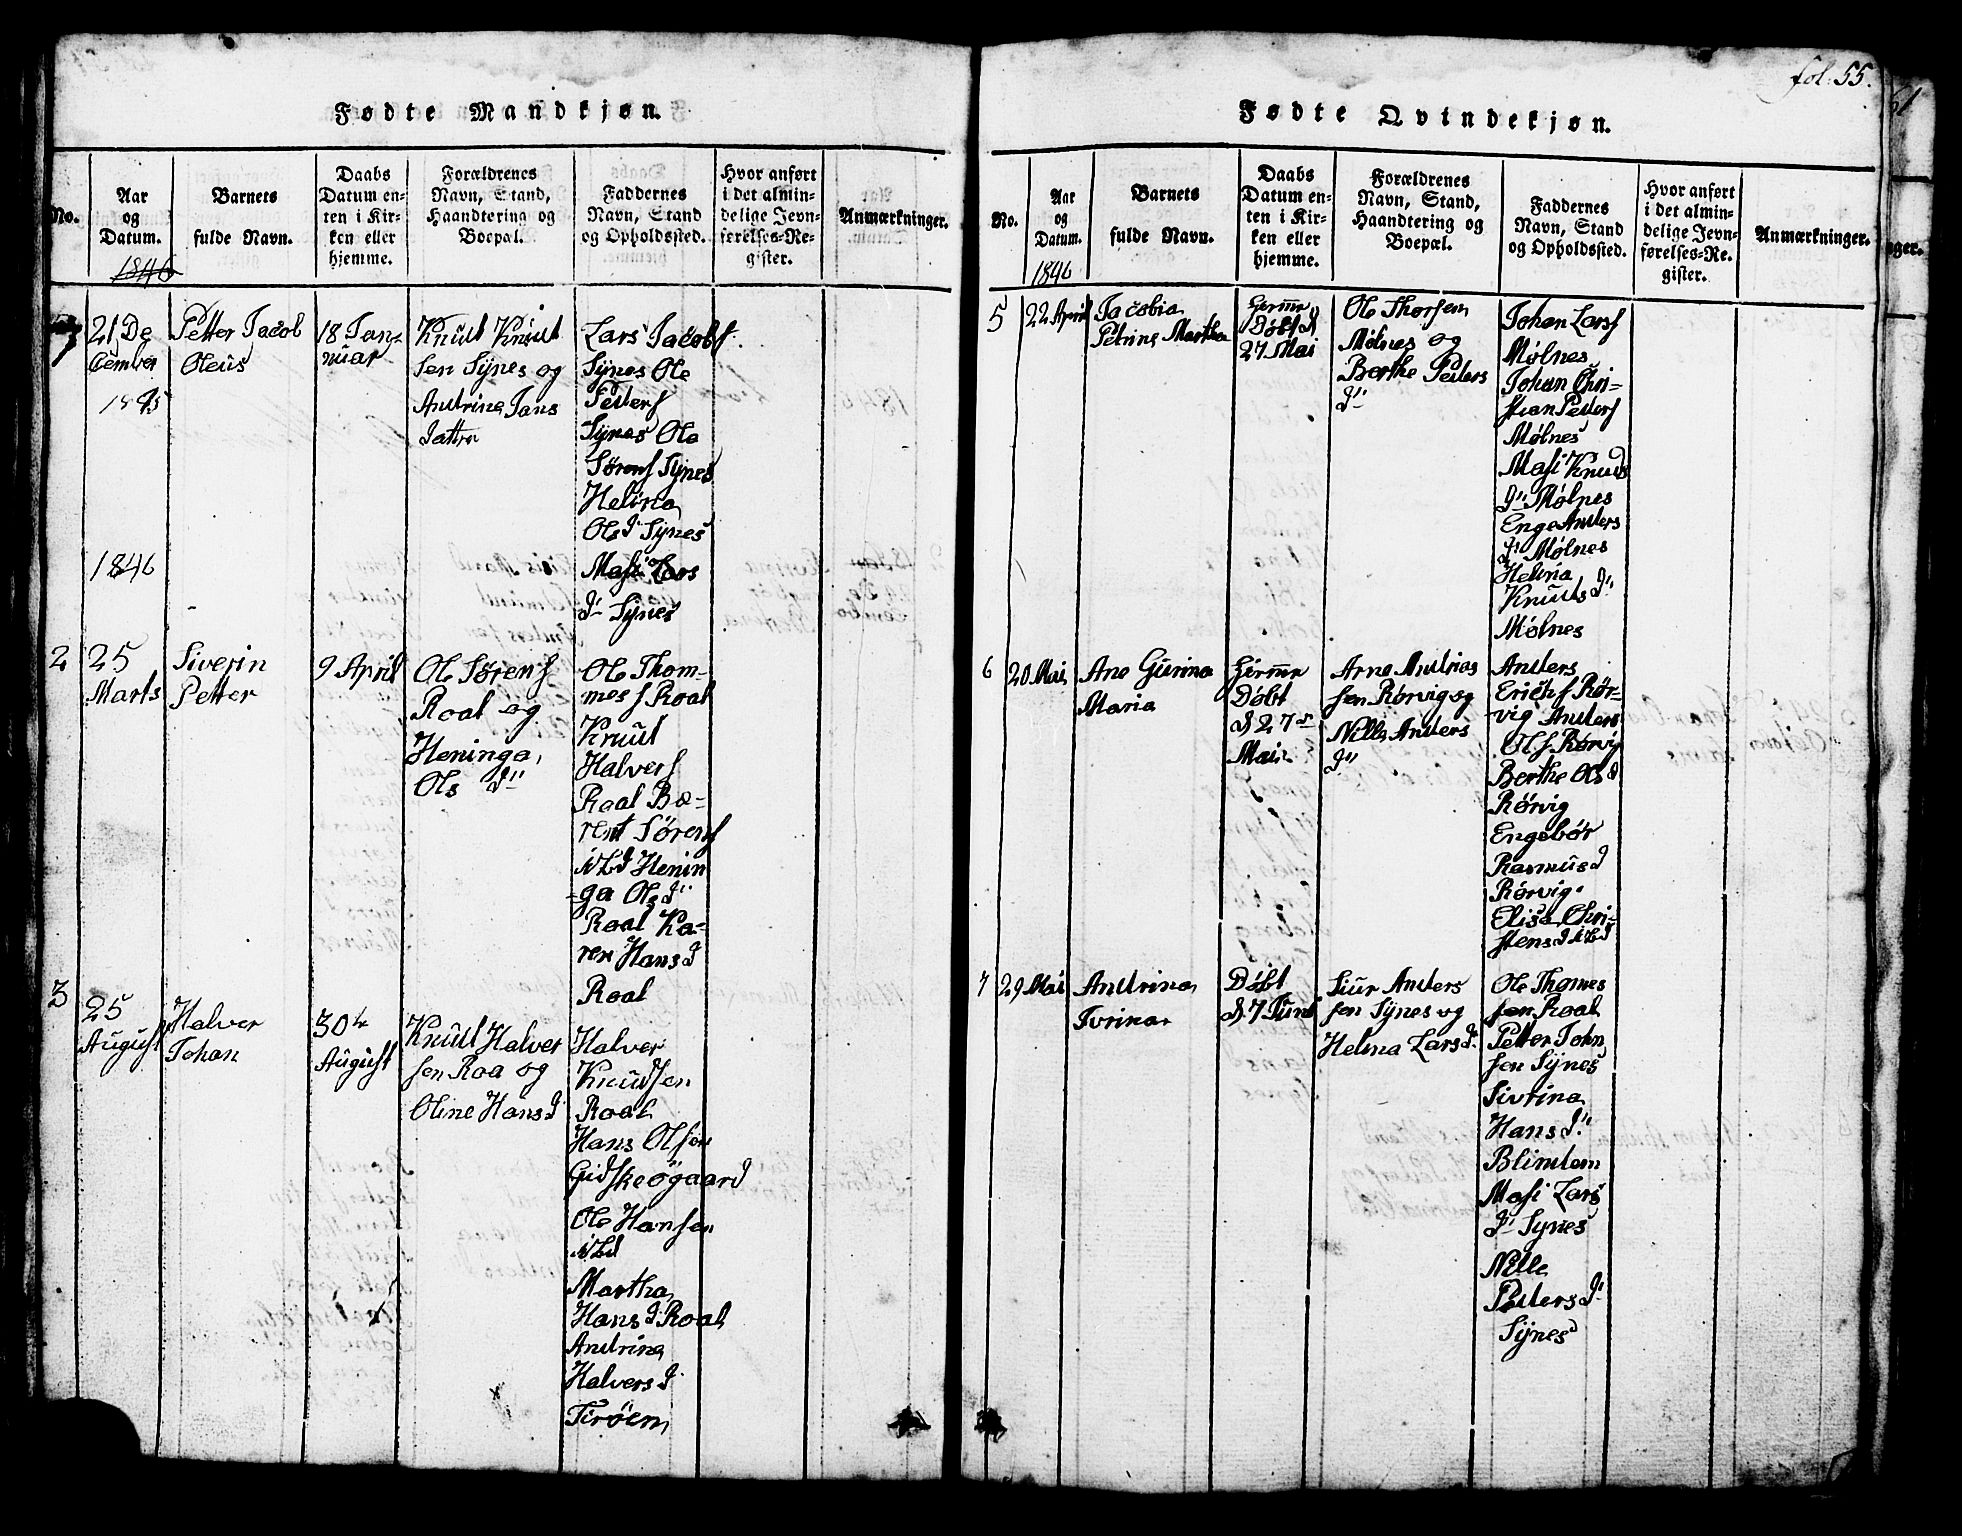 fol. 55.
61
Fødte Mandkjøn.
No.
Aar
og
Datum.
1846
Barnets
fulde Navn.
Daabs
Datum en-
ten i Kir-
ken eller
hjemme.
Forældrenes
Navn, Stand,
Haandtering og
Boepæl.
Faddernes
Navn, Stand
og Opholdssted.
Hvor anført
i det almin-
delige Jevn-
førelses-Re-
gister.
Anmærkninger.
21 De
cember
1845
Petter Jacob
Oleus
18 Jan-
nuar
Knud Knud
sen Synes og
Andrine Jans
Datter
Lars Jacobs.
Synes Ole
Peders
Synes Ole
Sørens Synes
Helina
Ols D Synes
Masi Lars
D Synes
1846
2
25
Marts
Siverin
Petter
9 April
Ole Sørens
Roal og
Heninga
Ols D
Ole Thom-
mes s Roal
Knud
Halvers
Roal Bæ-
rent Sørens
ibd Henin
-ga Ols D
Roal Ka-
ren Hans D
Roal
3
25
August
Halver
Johan
30
August
Knud Halver
sen Roa og
Oline Hans D
Halver
Knudsen
Roal
Hans Olsen
Gidskeøgaard
Ole Hansen
ibd
Martha
Hans D Roal
Andrina
Halvers D
Tirøen
Fødte Qvindekjøn.
No.
Aar
og
Datum.
1846
Barnets
fulde Navn.
Daabs
Datum en-
ten i Kir-
ken eller
hjemme.
Forældrenes
Navn, Stand,
Haandtering og
Boepæl.
Faddernes
Navn, Stand
og Opholdssted.
Hvor anført
i det almin-
delige Jevn-
førelses-Re-
gister.
Anmærkninger.
nger.
5
22 April
Jacobia
Petrine Martha
Døbt d
27 Mai
Ole Thorsen
Mølnes og
Berthe Peders
D
Johan Lars s
Mølnes
Johan Chri-
stian Peders
Mølnes
Masi Knuds
D Mølnes
Enge Anders
D Mølnes
Helina
Knuds D
Mølnes
6
20 Mai
Ane Gurina
Maria
Døbt
d 27
Mai
Arne Andrias
sen Rørvig og
Nille Anders
D
Anders
Erichs Rør-
vig Anders
Ol s Rørvig
Berthe Ols D
Rørvig
Engebør
Rasmus D
Rørvig
Elisa Chri-
stens D ibd
7
29 Mai
Andrina
Ivrina
Døbt
d 7 Juni
Siur Anders
sen Synes og
Helina Lars D
Ole Thomes
sen Roal
Petter John
sen Synes
Sivrina
Hans D
Blindem
Masi Lars
D Synes
Nille
Peders D
Synes